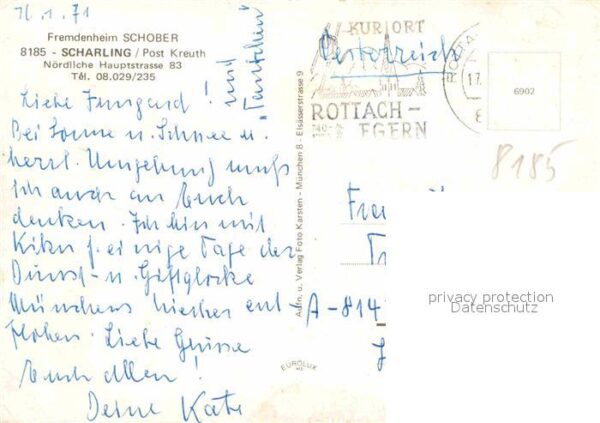 16.1.71
Fremdenheim SCHOBER
8185 - SCHARLING / Post Kreuth
Nördliche Hauptstrasse 83
Tel. 08.029/235
Liebe Irmgard !
und
"Tantchen"
Bei Sonne u. Schnee u.
herrl. Umgebung muß
ich auch an Euch
denken. Ich bin mit
f. einige Tage der
Dunst- u. Giftglocke
Münchens hierher ent-
flohen. Liebe Grüsse
Euch allen !
Deine Käte
Aufn. u. Verlag Foto Karsten - München 8 - Elsässerstrasse 9
EUROLUX
KURORT
ROTTACH-
EGERN
Österreich
6902
8185
Fra
A-814
privacy protection
Datenschutz